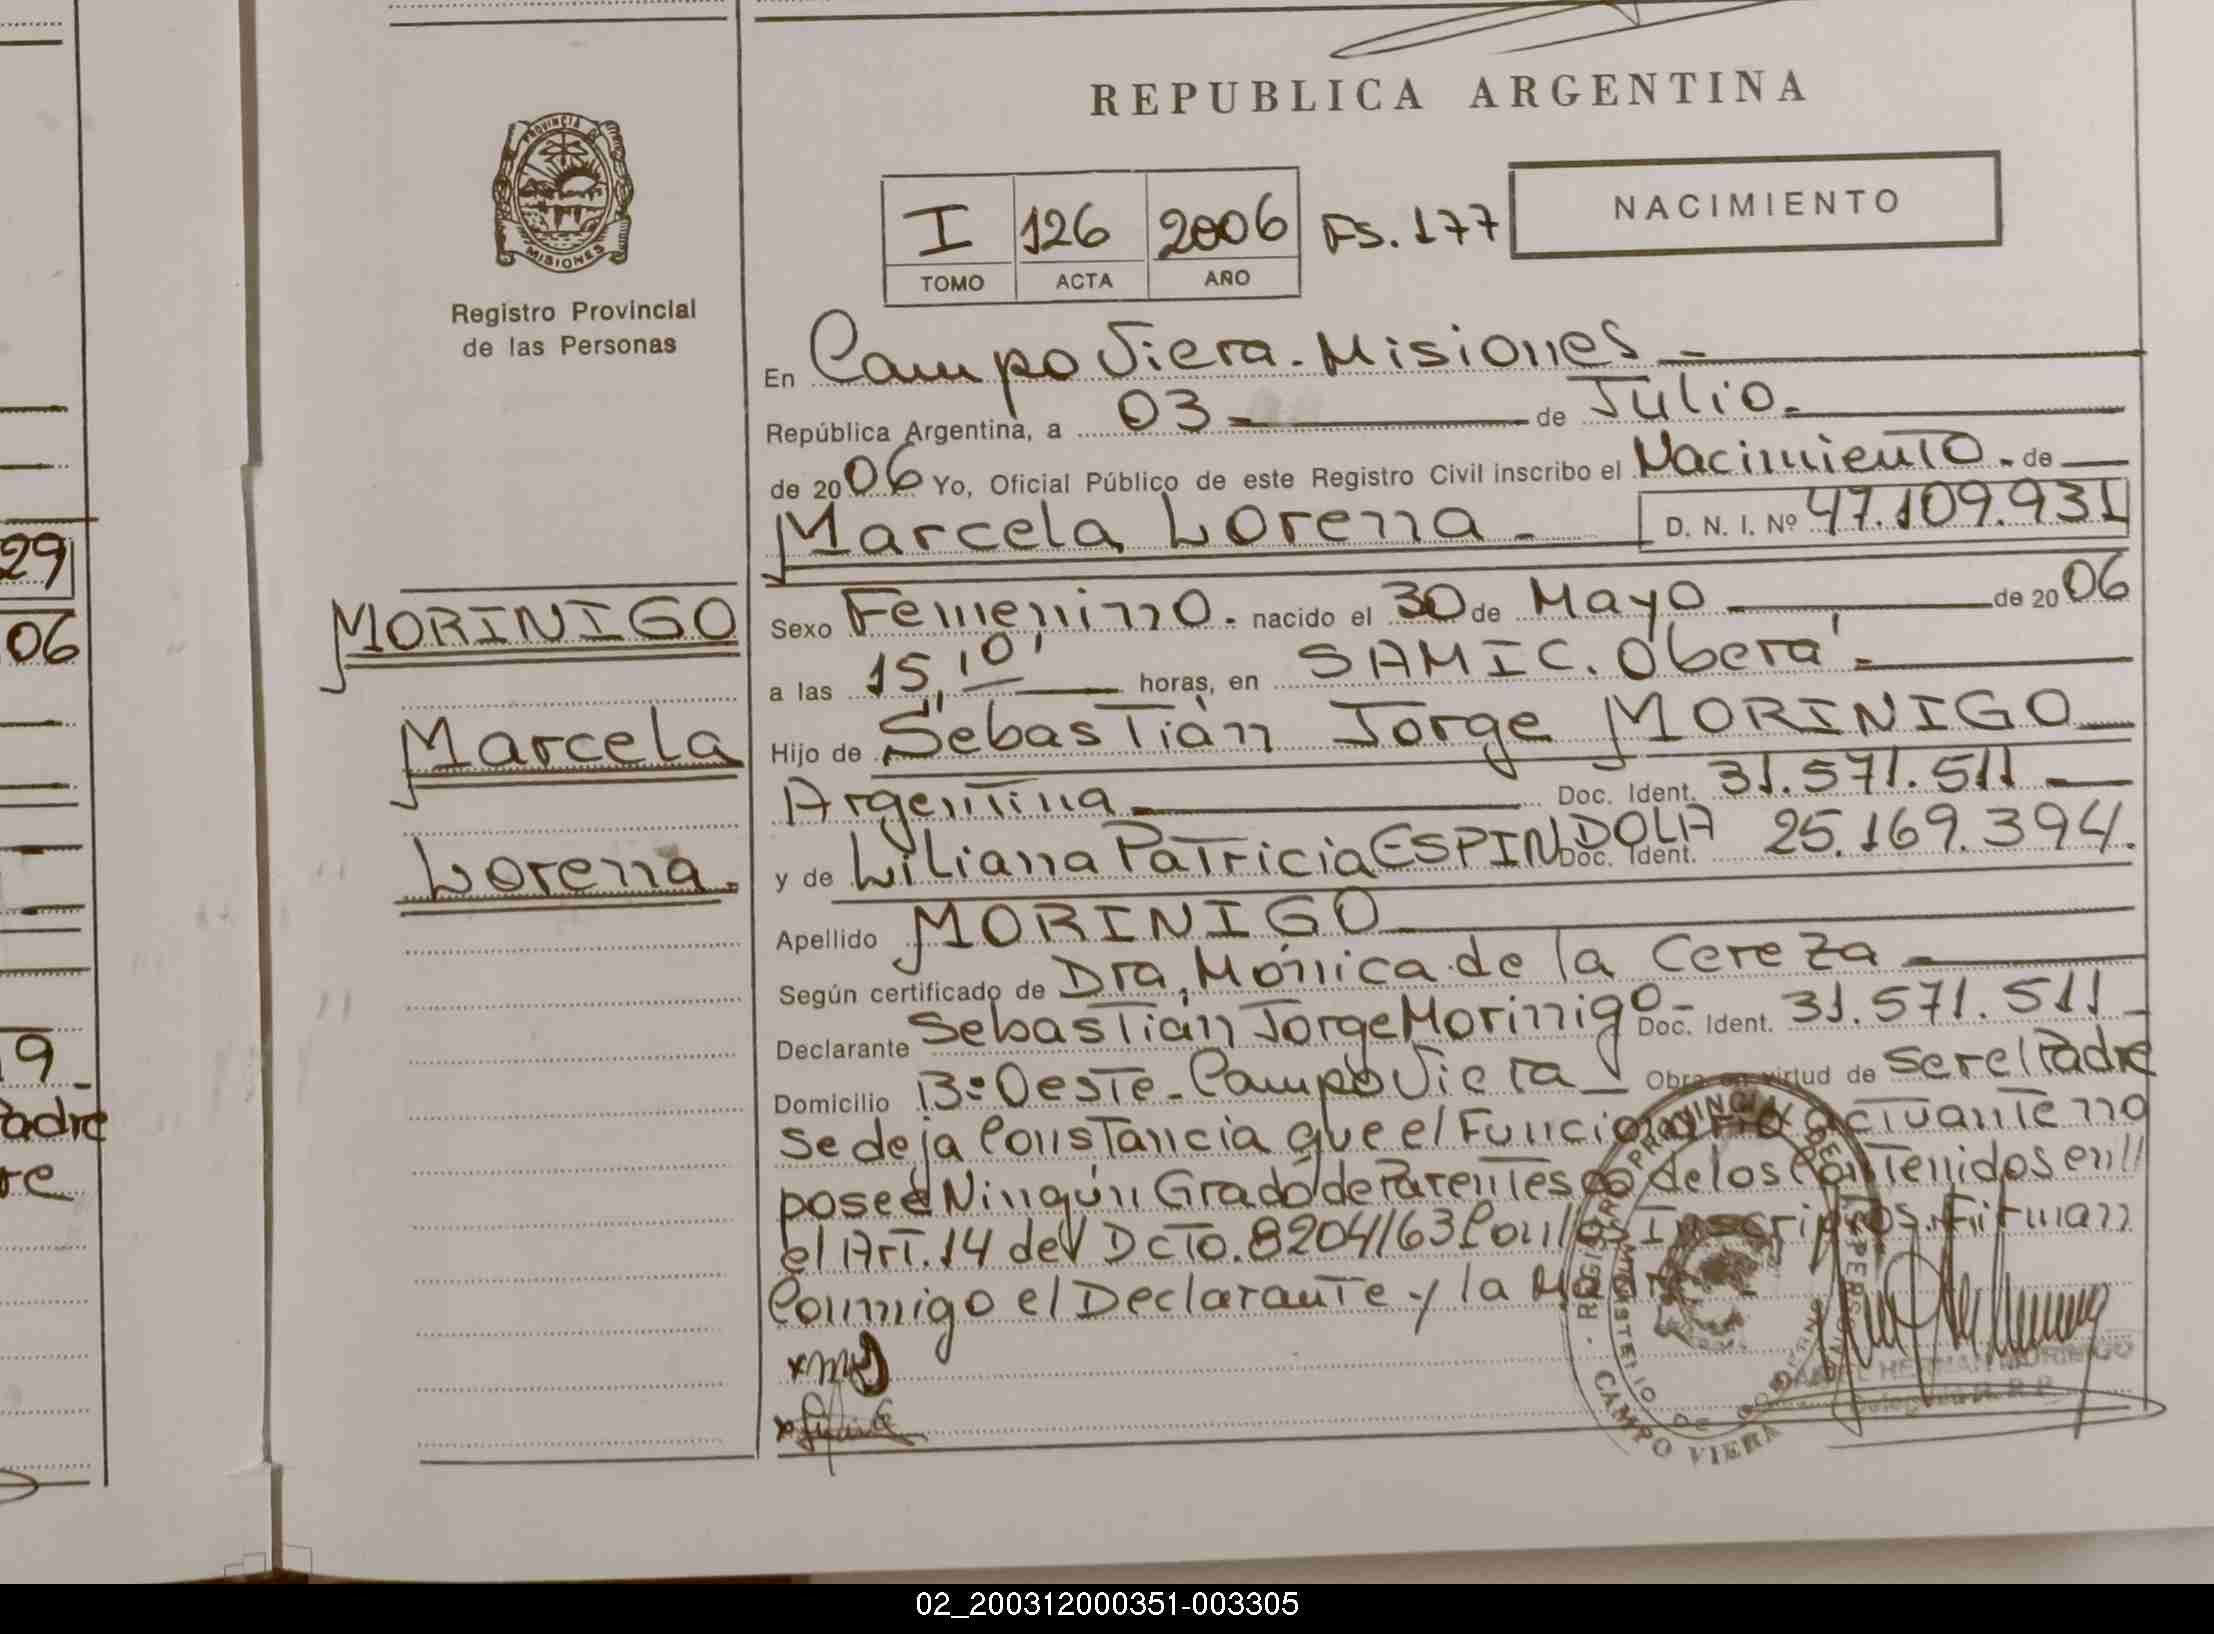 29
06
9
adre
re
PROVINCIA DE
MISIONES
Registro Provincial
de las Personas
MORINIGO
Marcela
Lorena.
REPUBLICA ARGENTINA
I 126 2006 Fs. 177 NACIMIENTO
TOMO ACTA AÑO
En Campo Viera - Misiones -
República Argentina, a 03 - de Julio -
de 2006 Yo, Oficial Público de este Registro Civil inscribo el Nacimiento - de
Marcela Lorena - D. N. I. Nº 47.109.931
Sexo Femenino - nacido el 30 de Mayo de 2006
a las 15,10' horas, en SAMIC. Oberá -
Hijo de Sebastián Jorge MORINIGO
Argentina - Doc. Ident. 31.571.511 -
y de Liliana Patricia ESPINDOLA Doc. Ident. 25.169.394.
Apellido MORINIGO
Según certificado de Dra, Mónica de la Cereza -
Declarante Sebastián Jorge Morinigo - Doc. Ident. 31.571.511 -
Domicilio B:Oeste - Campo Viera - Obra en virtud de ser el Padre
Se deja Constancia que el Funcionario actuante no
posee Ningún Grado de Parentesco de los Contenidos en //
el Art. 14 del Dcto. 8204/63 Con los Inscriptos. Firman
Conmigo el Declarante y la Madre
REGISTRO PROVINCIAL DE LAS PERSONAS
MINISTERIO DE GOBIERNO
CAMPO VIERA
HERNAN MORINIGO
Delegado R. R. P.
02_200312000351-003305